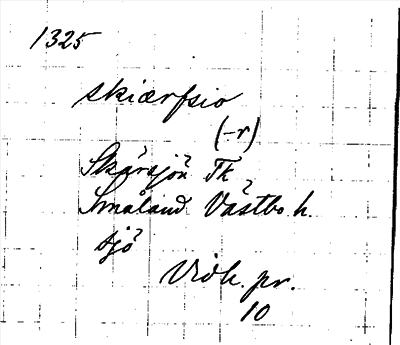 1325
skiærfsio
(-r)
Skärsjön Tk
Småland Västbo h.
sjö
Vidh. pr.
10